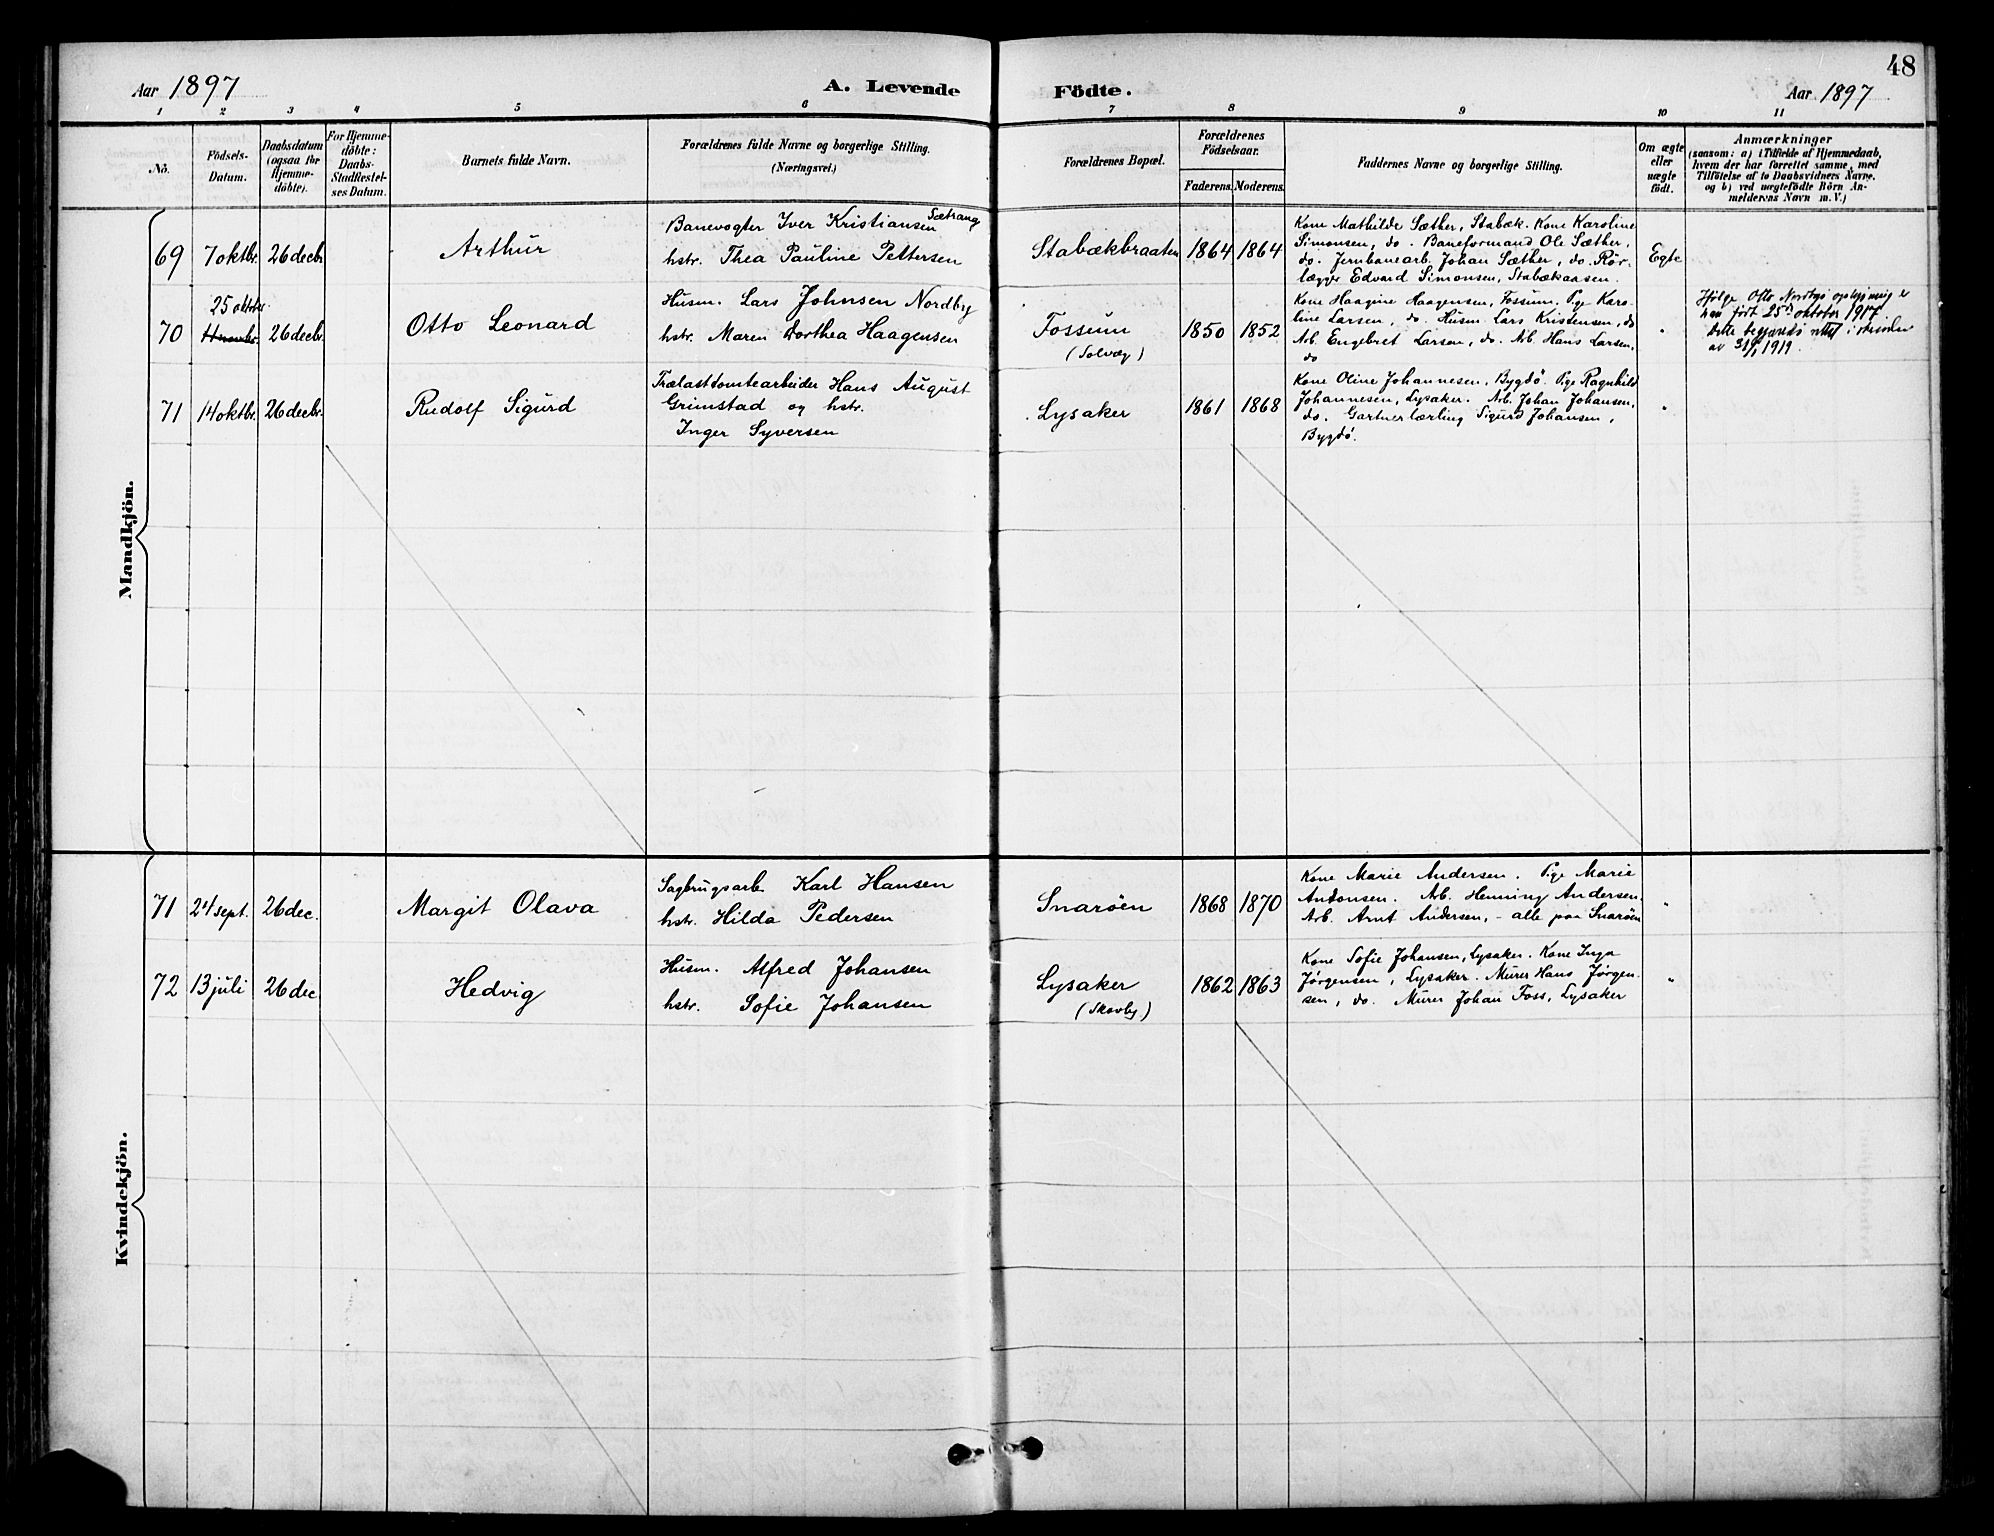 48
Aar 1897
A. Levende
Födte.
Aar 1897
1 2 3 4 5 6 7 8 9 10 11
No.
Födsels-
Datum.
Daabsdatum
(ogsaa for
Hjemme-
döbte).
For Hjemme-
döbte:
Daabs-
Stadfæstel-
ses Datum.
Barnets fulde Navn.
Forældrenes fulde Navne og borgerlige Stilling.
(Næringsvei.)
Forældrenes Bopæl.
Forældrenes
Födselsaar.
Faderens. Moderens.
Faddernes Navne og borgerlige Stilling.
Om ægte
eller
uægte
födt.
Anmærkninger
(saasom: a) i Tilfælde af Hjemmedaab,
hvem der har forrettet samme, med
Tilföielse af to Daabsvidners Navne.
og b) ved uægtefödte Börn An-
melderens Navn m. V.)
Mandkjön.
69 7 oktbr. 26 decbr
Arthur
Sætrang
Banevogter Iver Kristiansen
hstr. Thea Pauline Pettersen
Stabækbraaten
1864 1864
Kone Mathilde Sæther, Stabæk. Kone Karoline
Simonsen, do. Baneformand Ole Sæther,
do. Jernbanearb. Johan Sæther, do. Rör-
lægger Edvard Simonsen, Stabækaasen
Egte
25 oktbr.
70 26 decbr.
Otto Leonard
Husm. Lars Johnsen Nordby
hstr. Maren Dorthea Haagensen
Fossum
(Solvæg)
1850 1852
Kone Haagine Haagensen, Fossum. Pige Karo-
line Larsen, do. Husm. Lars Kristensen, do
Arb. Engebret Larsen, do. Arb. Hans Larsen,
do
"
Ifølge Otto Nordbys opgjivning er
han født 25de oktober 1917.
Dette begjæres rettet i
av 31/1 1919.
71 14 oktbr. 26 decbr.
Rudolf Sigurd
Trælasttomtearbeider Hans August
Grimstad og hstr.
Inger Syversen
Lysaker
1861 1868
Kone Oline Johannesen, Bygdö. Pige Ragnhild
Johannesen, Lysaker. Arb. Johan Johansen,
do. Gartnerlærling Sigurd Johansen,
Bygdö.
"
Kvindekjön.
71 24 sept. 26 dec.
Margit Olava
Sagbrugsarb. Karl Hansen
hstr. Hilda Pedersen
Snaröen
1868 1870
Kone Marie Andersen. Pige Marie
Antonsen. Arb. Henning Andersen.
Arb. Arnt Andersen, - alle paa Snaröen
"
72 13 juli 26 dec
Hedvig
Husm. Alfred Johansen
hstr. Sofie Johansen
Lysaker
(Skovby)
1862 1863
Kone Sofie Johansen, Lysaker. Kone Inga
Jørgensen, Lysaker. Murer Hans Jørgen-
sen, do. Murer Johan Foss, Lysaker
"